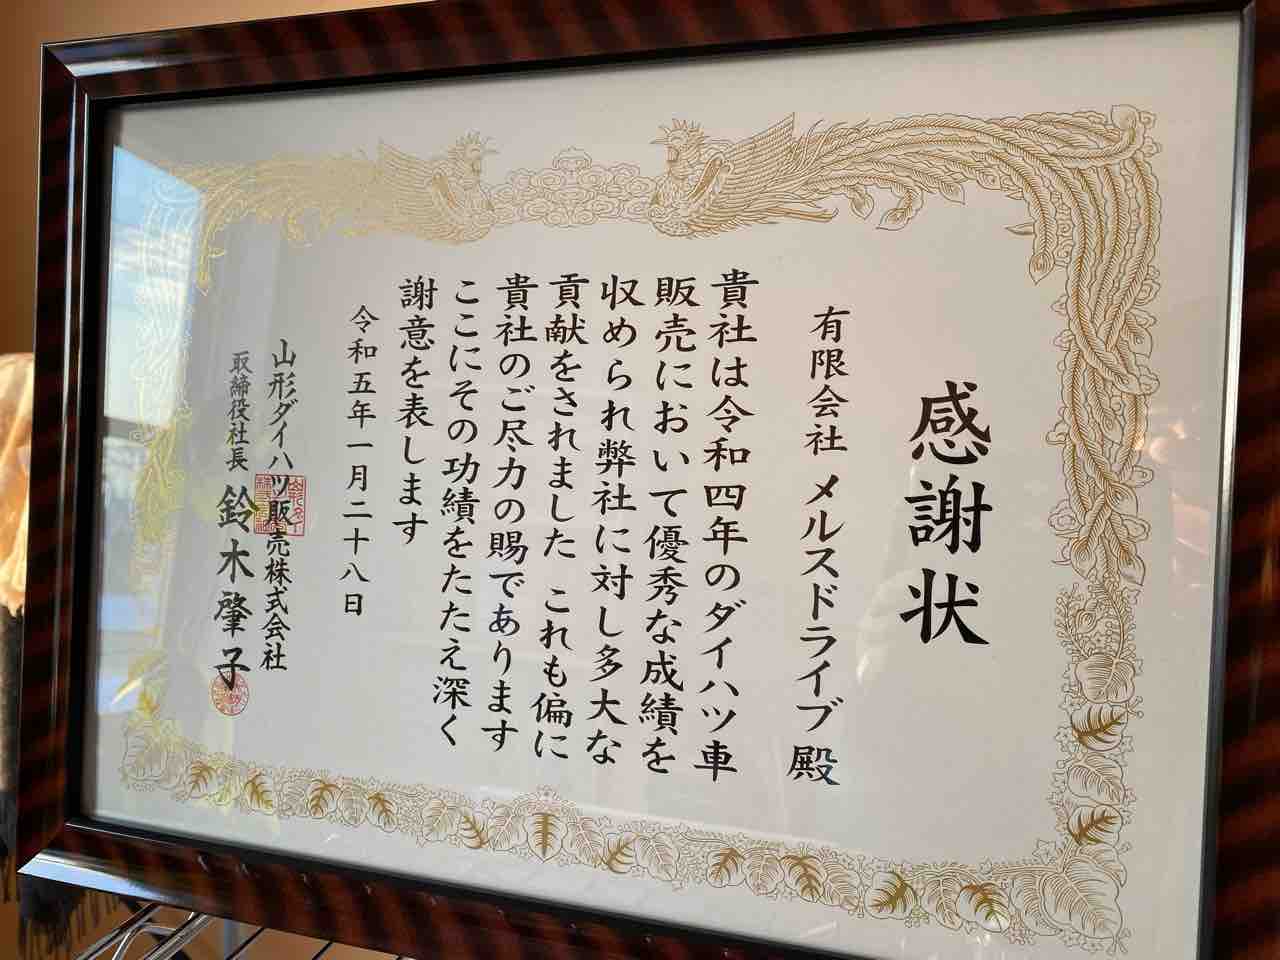 感謝状
有限会社 メルスドライブ 殿
貴社は令和四年のダイハツ車
販売において優秀な成績を
収められ弊社に対し多大な
貢献をされました これも偏に
貴社のご尽力の賜であります
ここにその功績をたたえ深く
謝意を表します
令和五年一月二十八日
山形ダイハツ販売株式会社
取締役社長 鈴木肇子